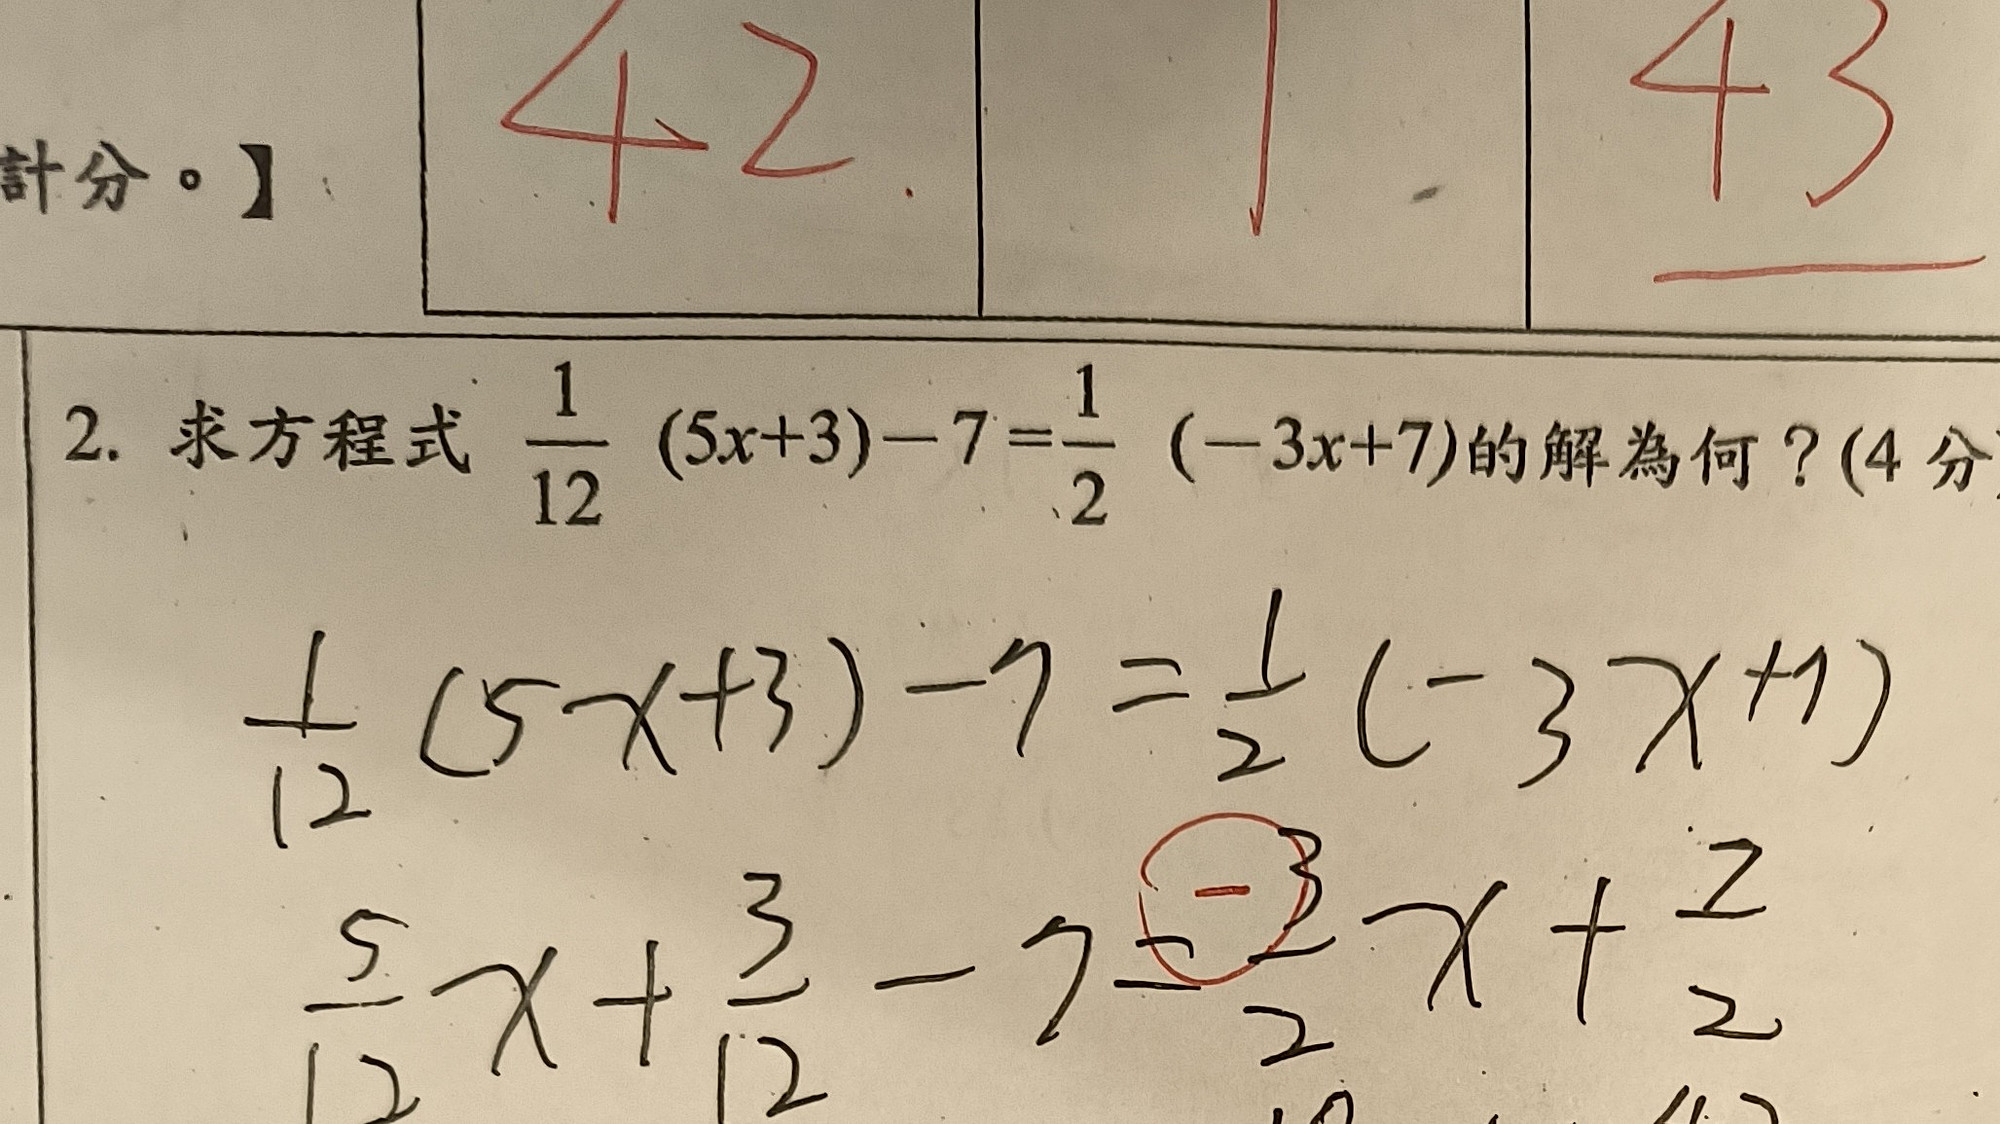 42 1 43
計分。】
2. 求方程式 1/12 (5x+3)－7=1/2 (－3x+7)的解為何？(4 分)
1/12 (5x+3) -7 = 1/2 (-3x+7)
5/12 x + 3/12 - 7 = - 3/2 x + 7/2